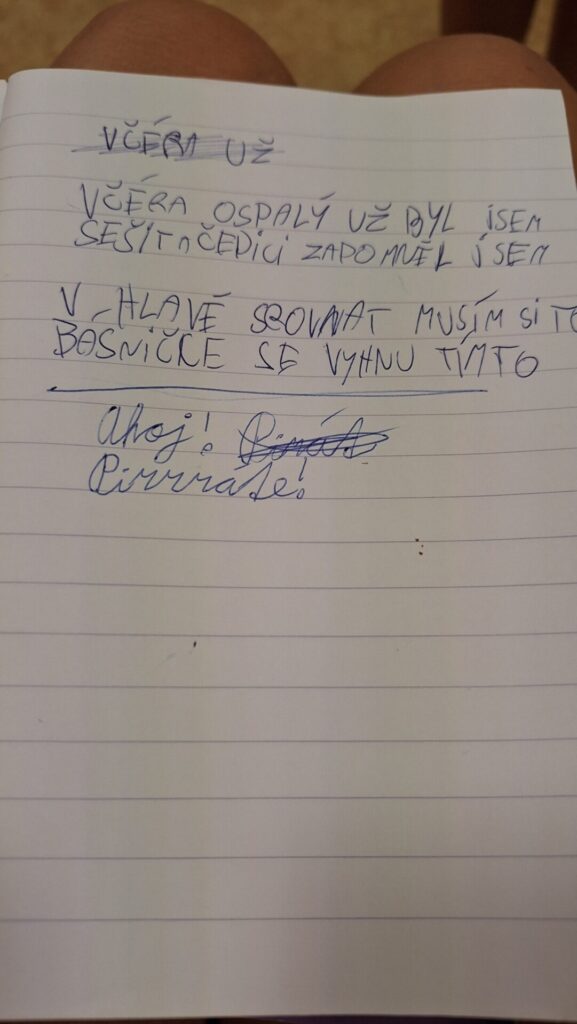 VČÉRA UŽ
VČÉRA OSPALÝ UŽ BYL JSEM
SEŠIT ZAPOMNĚL JSEM
V HLAVĚ SROVNAT MUSÍM SI TO
BÁSNIČKE SE VYHNU TÍMTO
Ahoj! Pirát
Pirrráte!